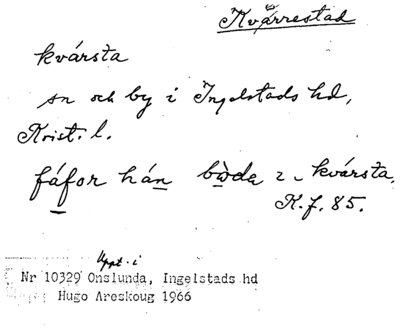 Kvärrestad
kvársta
sn och by i Ingelstads hd,
Krist. l.
fáfor hán bòda i kvársta.
K.f. 85.
Uppt. i
Nr 10329 Onslunda, Ingelstads hd
Hugo Areskoug 1966